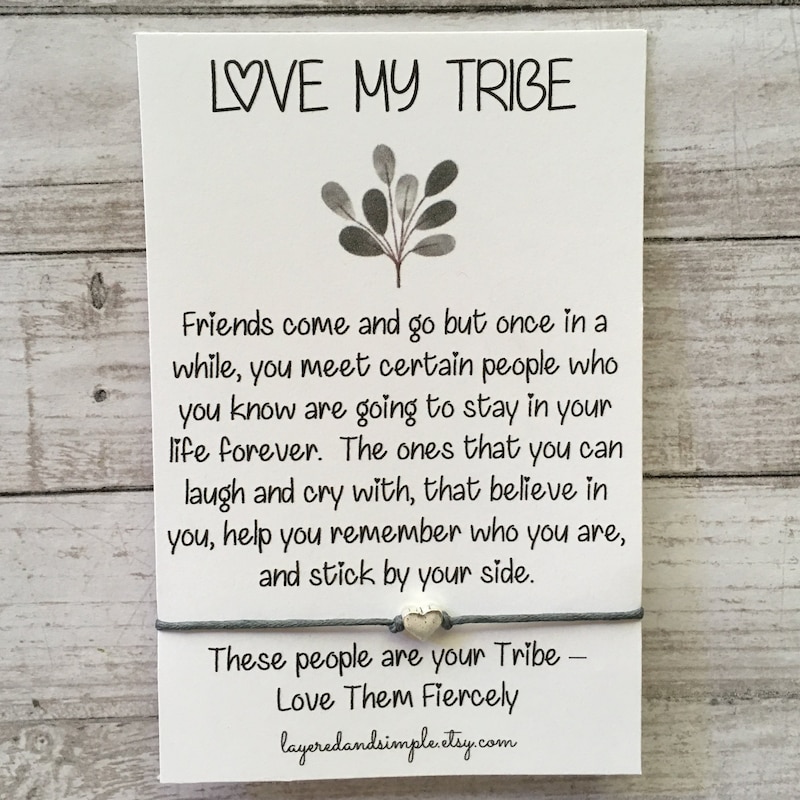 LOVE MY TRIBE
Friends come and go but once in a
while, you meet certain people who
you know are going to stay in your
life forever. The ones that you can
laugh and cry with, that believe in
you, help you remember who you are,
and stick by your side.
These people are your Tribe –
Love Them Fiercely
layeredandsimple.etsy.com